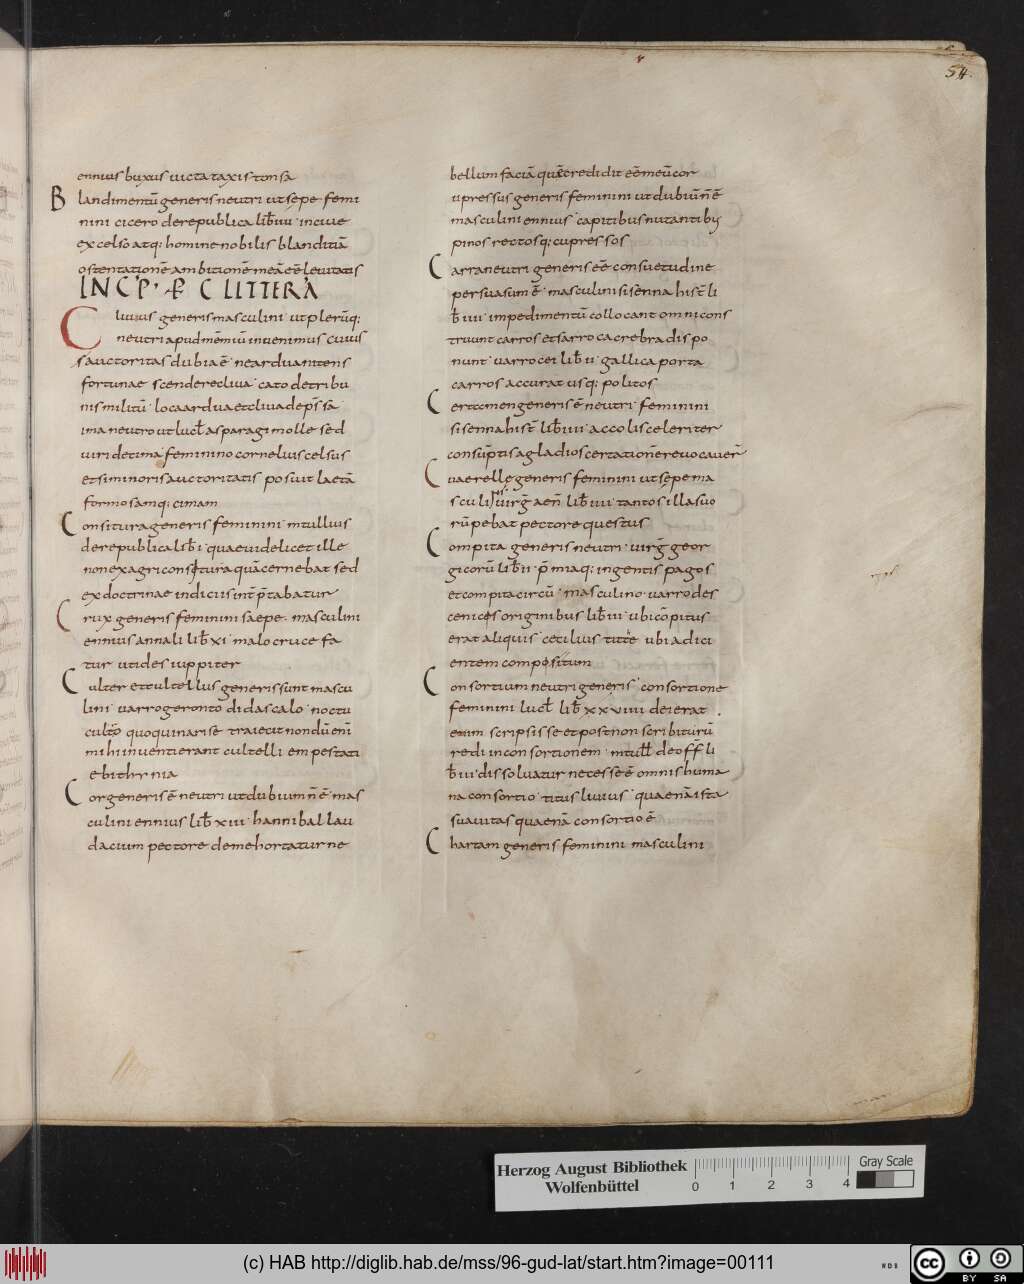 54.
ennius buxus uicta taxis tonsa
Blandimentū generis neutri ut sepe femi
nini cicero de republica lib̄ iiii · inciue
excelso atq; homine nobilis blanditiā
ostentationē ambitionē meā eē leuitatis
INCP · C LITTERA
Cliuius generis masculini ut plerūq;
neutri apud mēmiū inuenimus cuius
auctoritas dubia ē · ne ardua nitens
fortunae scendere cliua · cato de tribu
nis militū · loca ardua et cliua deps̄ sa
ima neutro ut lucl̄ asparagi molle sed
uiri de cima feminino cornelius celsus
et si minoris auctoritatis posuit laetā
formosamq; cimam
Consitura generis feminini · m tullius
de republica lib̄ i · quae uidelicet ille
non ex agri consitura quā cernebat sed
ex doctrinae indiciis int̄ p̄tabatur
Crux generis feminini saepe · masculini
ennius annali lib̄ xi · malo cruce fa
tur uti des iuppiter
Culter et cultellus generis sunt mascu
lini · uarro geronto didascalo · noctu
cultro quoquinari se traiecit nondū enī
mihi inuenti erant cultelli empestati
e bithynia
Cor generis ē neutri ut dubium n̄ ē · mas
culini ennius lib̄ xiii · hannibal lau
dacium pectore de me hortatur ne
bellum faciā quē credidit eē meū cor
upressus generis feminini ut dubiū n̄ ē
masculini ennius · capitibus nutantibus
pinos rectosq; cupressos
Carra neutri generis eē consuetudine
persuasum ē · masculini sisenna hist̄ li
b̄ iii · impedimentū collocant omni cons
truunt carros et sarroca crebra dispo
nunt · uarro cei lib̄ ii · gallica porta
carros accurat usq; politos
Certamen generis ē neutri · feminini
sisenna hist̄ lib̄ iiii · accolis celeriter
consūptis a gladios certationē reuocauer̄
Cuaerelle generis feminini ut sepe ma
sculini uirḡ aen̄ lib̄ iiii · tantos illa suo
rūpebat pectore questus
Compita generis neutri · uirḡ geor
gicorū lib̄ ii · p̄miaq; ingentis pagos
et compita circū · masculino · uarro des
cenices originibus lib̄ iii · ubi cōpitus
erat aliquis · cecilius titte ubi adici
entem compositum
Consortium neutri generis · consortione
feminini lucl̄ lib̄ xxviiii deierat
enim scripsisse et post non scribiturū
redi in consortionem · m tull̄ de off li
b̄ iii · dissoluatur necesse ē omnis huma
na consortio · titus liuius · quaenā ista
suauitas quaenā consortio ē
Chartam generis feminini masculini
Herzog August Bibliothek
Wolfenbüttel
0 1 2 3 4
Gray Scale
(c) HAB http://diglib.hab.de/mss/96-gud-lat/start.htm?image=00111
WDB
cc BY SA